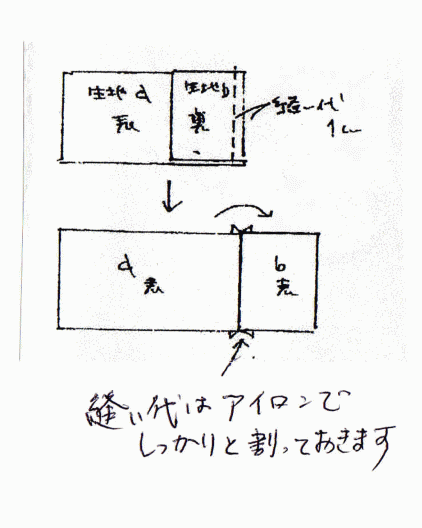 生地a
表
生地b
裏
縫い代
1cm
a
表
b
表
縫い代はアイロンで
しっかりと割っておきます